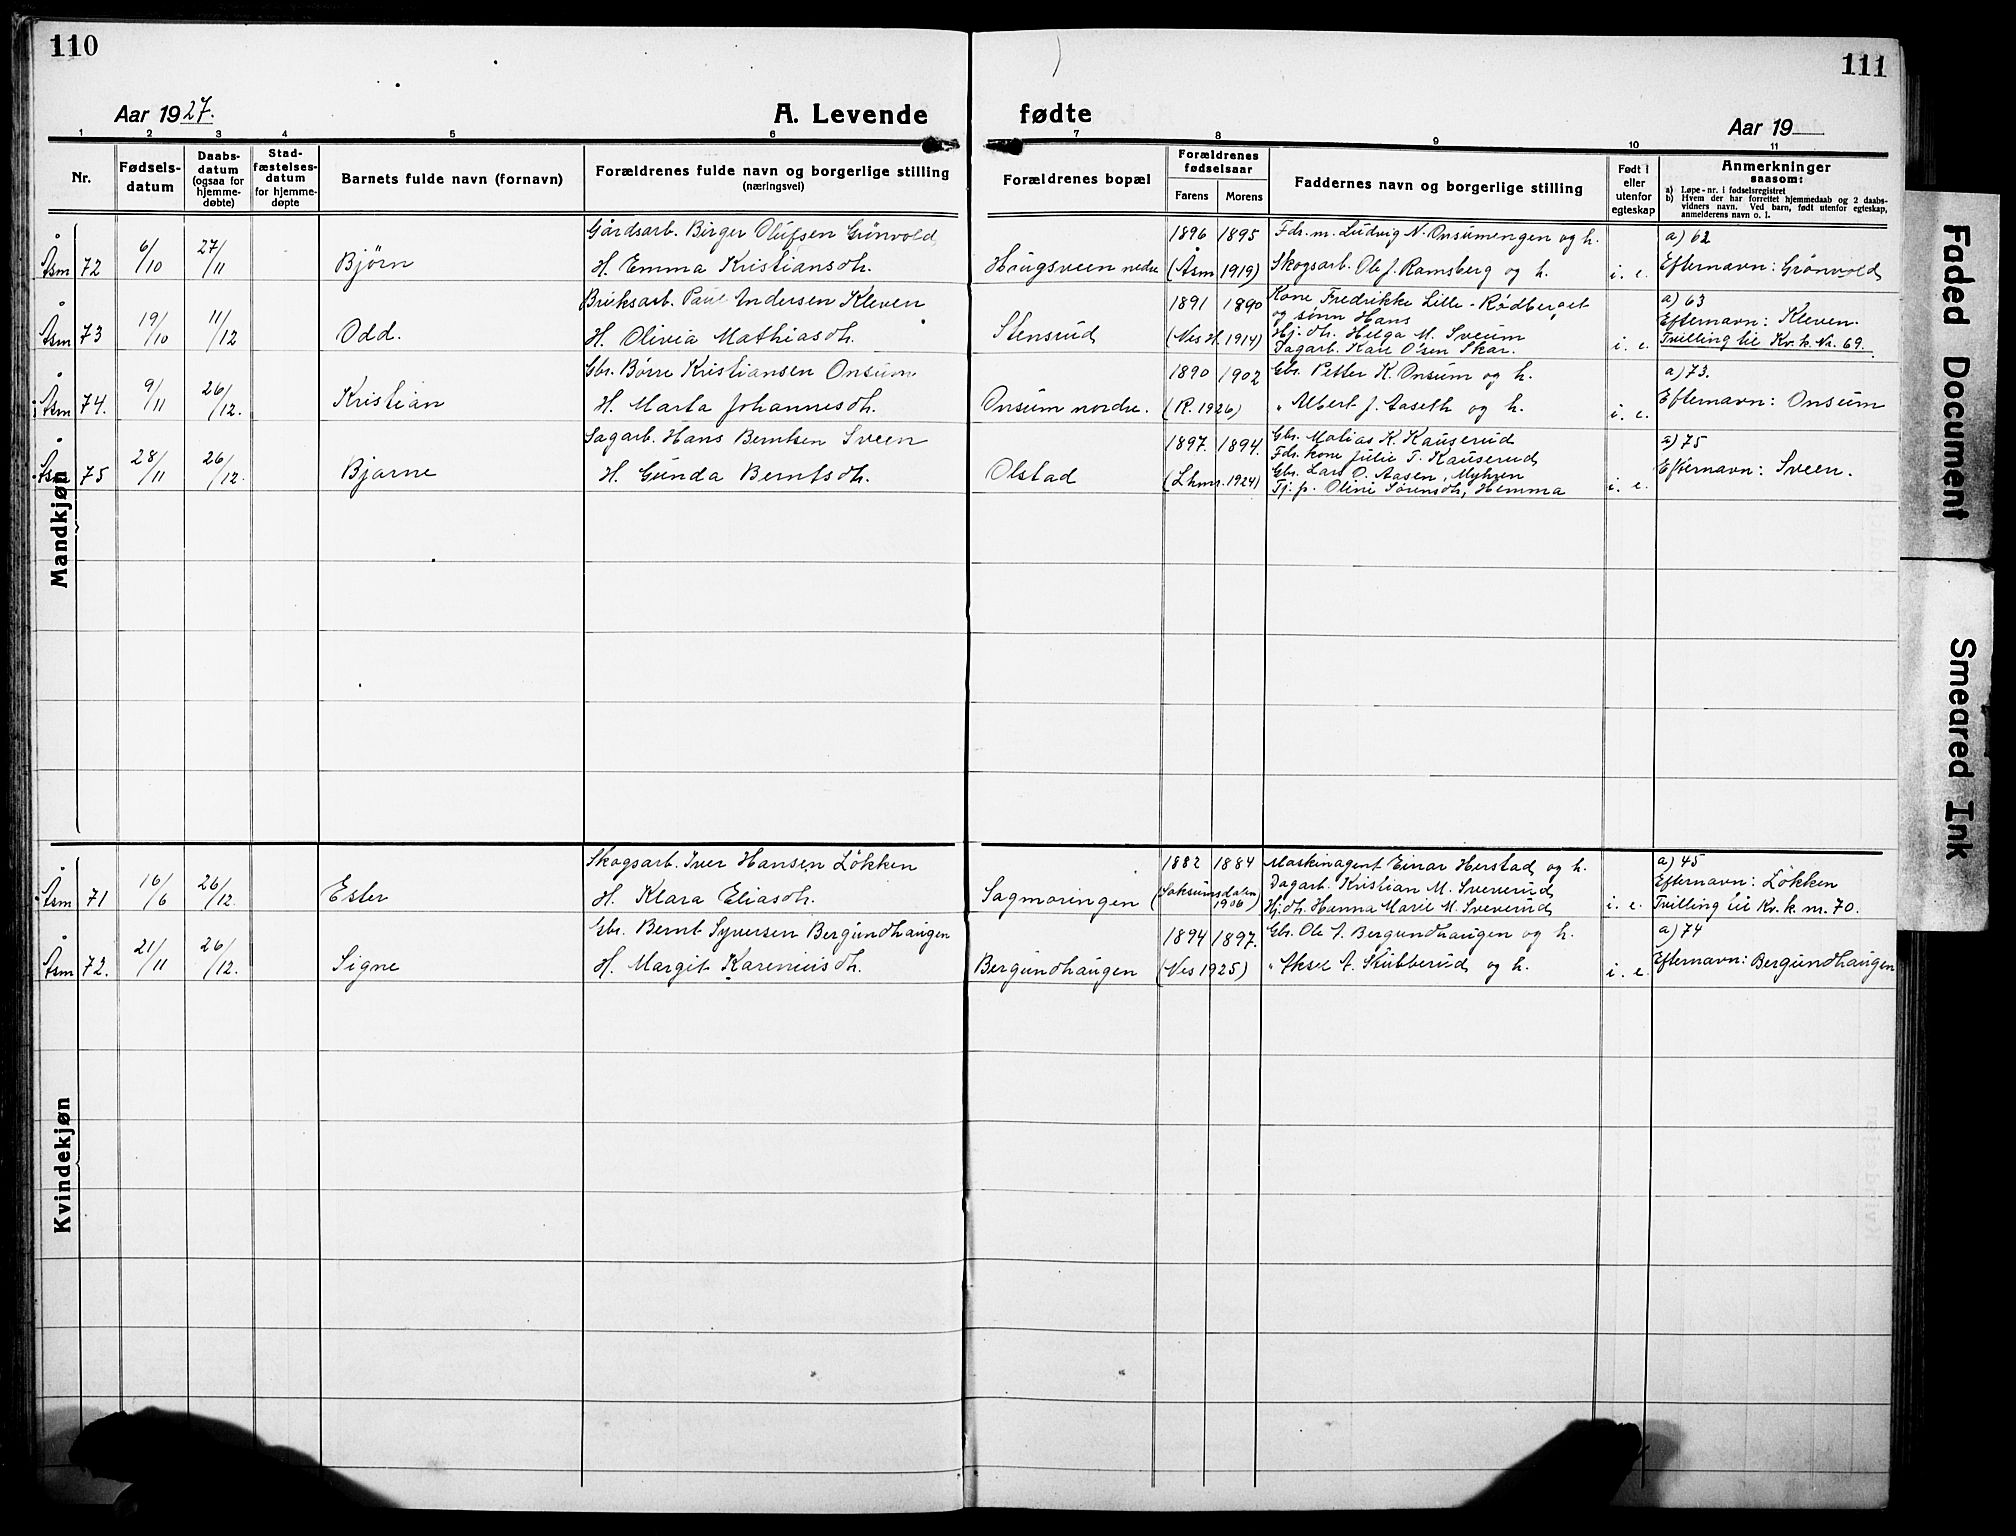 110
111
Aar 1927.
A. Levende
fødte
Aar 19
1 2 3 4 5 6 7 8 9 10 11
Nr.
Fødsels-
datum
Daabs-
datum
(ogsaa for
hjemme-
døbte)
Stad-
fæstelses-
datum
for hjemme-
døpte
Barnets fulde navn (fornavn)
Forældrenes fulde navn og borgerlige stilling
(næringsvei)
Forældrenes bopæl
Forældrenes
fødselsaar
Farens
Morens
Faddernes navn og borgerlige stilling
Født i
eller
utenfor
egteskap
Anmerkninger
saasom:
a) Løpe-nr. i fødselsregistret
b) Hvem der har forrettet hjemmedaab og 2 daabs-
vidners navn. Ved barn, født utenfor egteskap,
anmelderens navn o. l.
Mandkjøn
Åsm 72 6/10 27/11 Bjørn
Gårdsarb. Birger Olufsen Grönvold
H. Emma Kristiansdh.
Haugsveen nedre
1896 1895
(Åsm 1919)
Fds. m. Ludvig N. Onsumengen og h.
Skogsarb. Ole J. Ramsberg og h.
i. e.
a) 62
Efternavn: Grönvold
Åsm 73 19/10 11/12 Odd.
Bruksarb. Paul Andersen Kleven
H. Olivia Mathiasdh.
Stensrud
1891 1890
(Nes H. 1914)
Kone Fredrikke Lille-Rödberget
og sønn Hans
Hj. dh. Helga M. Sveum
Dagarb. Kåre Olsen Skar.
i. e.
a) 63
Efternavn: Kleven.
Tvilling til Kv. k. Nr. 69.
Åsm 74. 9/11 26/12. Kristian
Gbr. Börre Kristiansen Onsum
H. Marta Johannesdh.
Onsum nordre.
1890 1902
(R. 1926)
Gbr. Petter K. Onsum og h.
" Albert J. Aaseth og h.
i. e.
a) 73.
Efternavn: Onsum
Åsm 75 28/11 26/12. Bjarne
Sagarb. Hans Berntsen Sveen
H. Gunda Berntsdh.
Olstad
1897. 1894.
(Lhmr. 1924)
Gbr. Matias K. Kauserud
Fds. kone Julie T. Kauserud
Gbr. Lars O. Aasen, Myhren
Tj. p. Oline Sørensdh, Hemma
i. e.
a) 75
Efternavn: Sveen.
Kvindekjøn
Åsm 71 16/6 26/12. Ester
Skogsarb. Iver Hansen Lökken
H. Klara Eliasdh.
Sagmoringen
1882 1884
(Saksumsdalen
1906)
Maskinagent Einar Herstad og h.
Dagarb. Kristian M. Sveverud
Hj. dh. Hanna Marie M. Sveverud
i. e.
a) 45
Efternavn: Lökken
Tvilling til Kv. k. nr. 70.
Åsm 72. 21/11 26/12. Signe
Gbr. Bernt Syversen Bergundhaugen
H. Margit Kareniusdh.
Bergundhaugen
1894 1897.
(Nes 1925)
Gbr. Ole A. Bergundhaugen og h.
" Aksel A. Skubberud og h.
i. e.
a) 74
Efternavn: Bergundhaugen
Faded Document
Smeared Ink